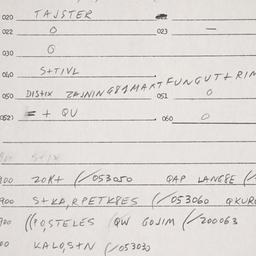 020 TAJSTER
022 O 023 —
030 O
040 S+TIVL
050 DISTIX ZAJNING&1MAKT FUNGUT+RIN 051 O
052) = + QU 060 O
900 20K+ (/053050 QAP LANG8E (/
900 S+KA,RPETK8ES (/053060 QKURO
900 ((PO,STELES QW GOJIM (/200063
00 KALO,S+N (/053030